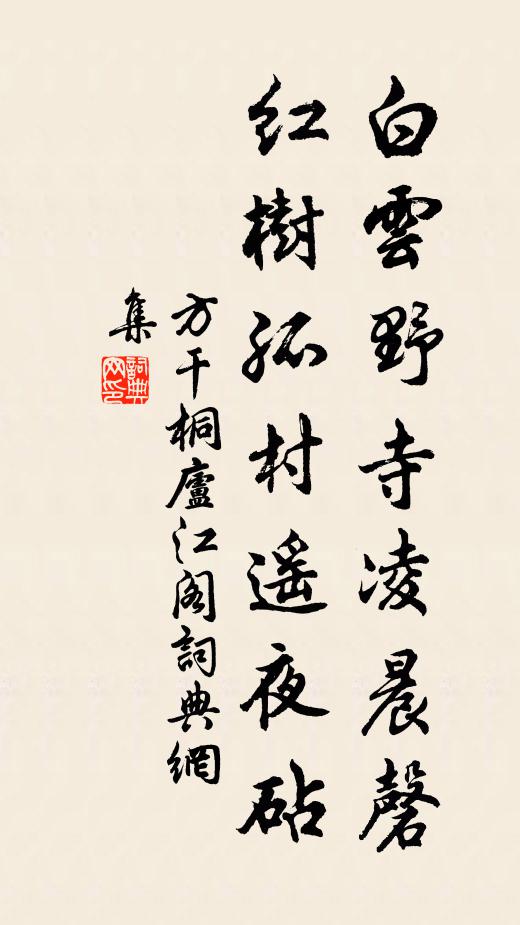 白雲野寺凌晨磬
紅樹孤村遥夜砧
方干桐廬江阁詞典網
集
詞典网印